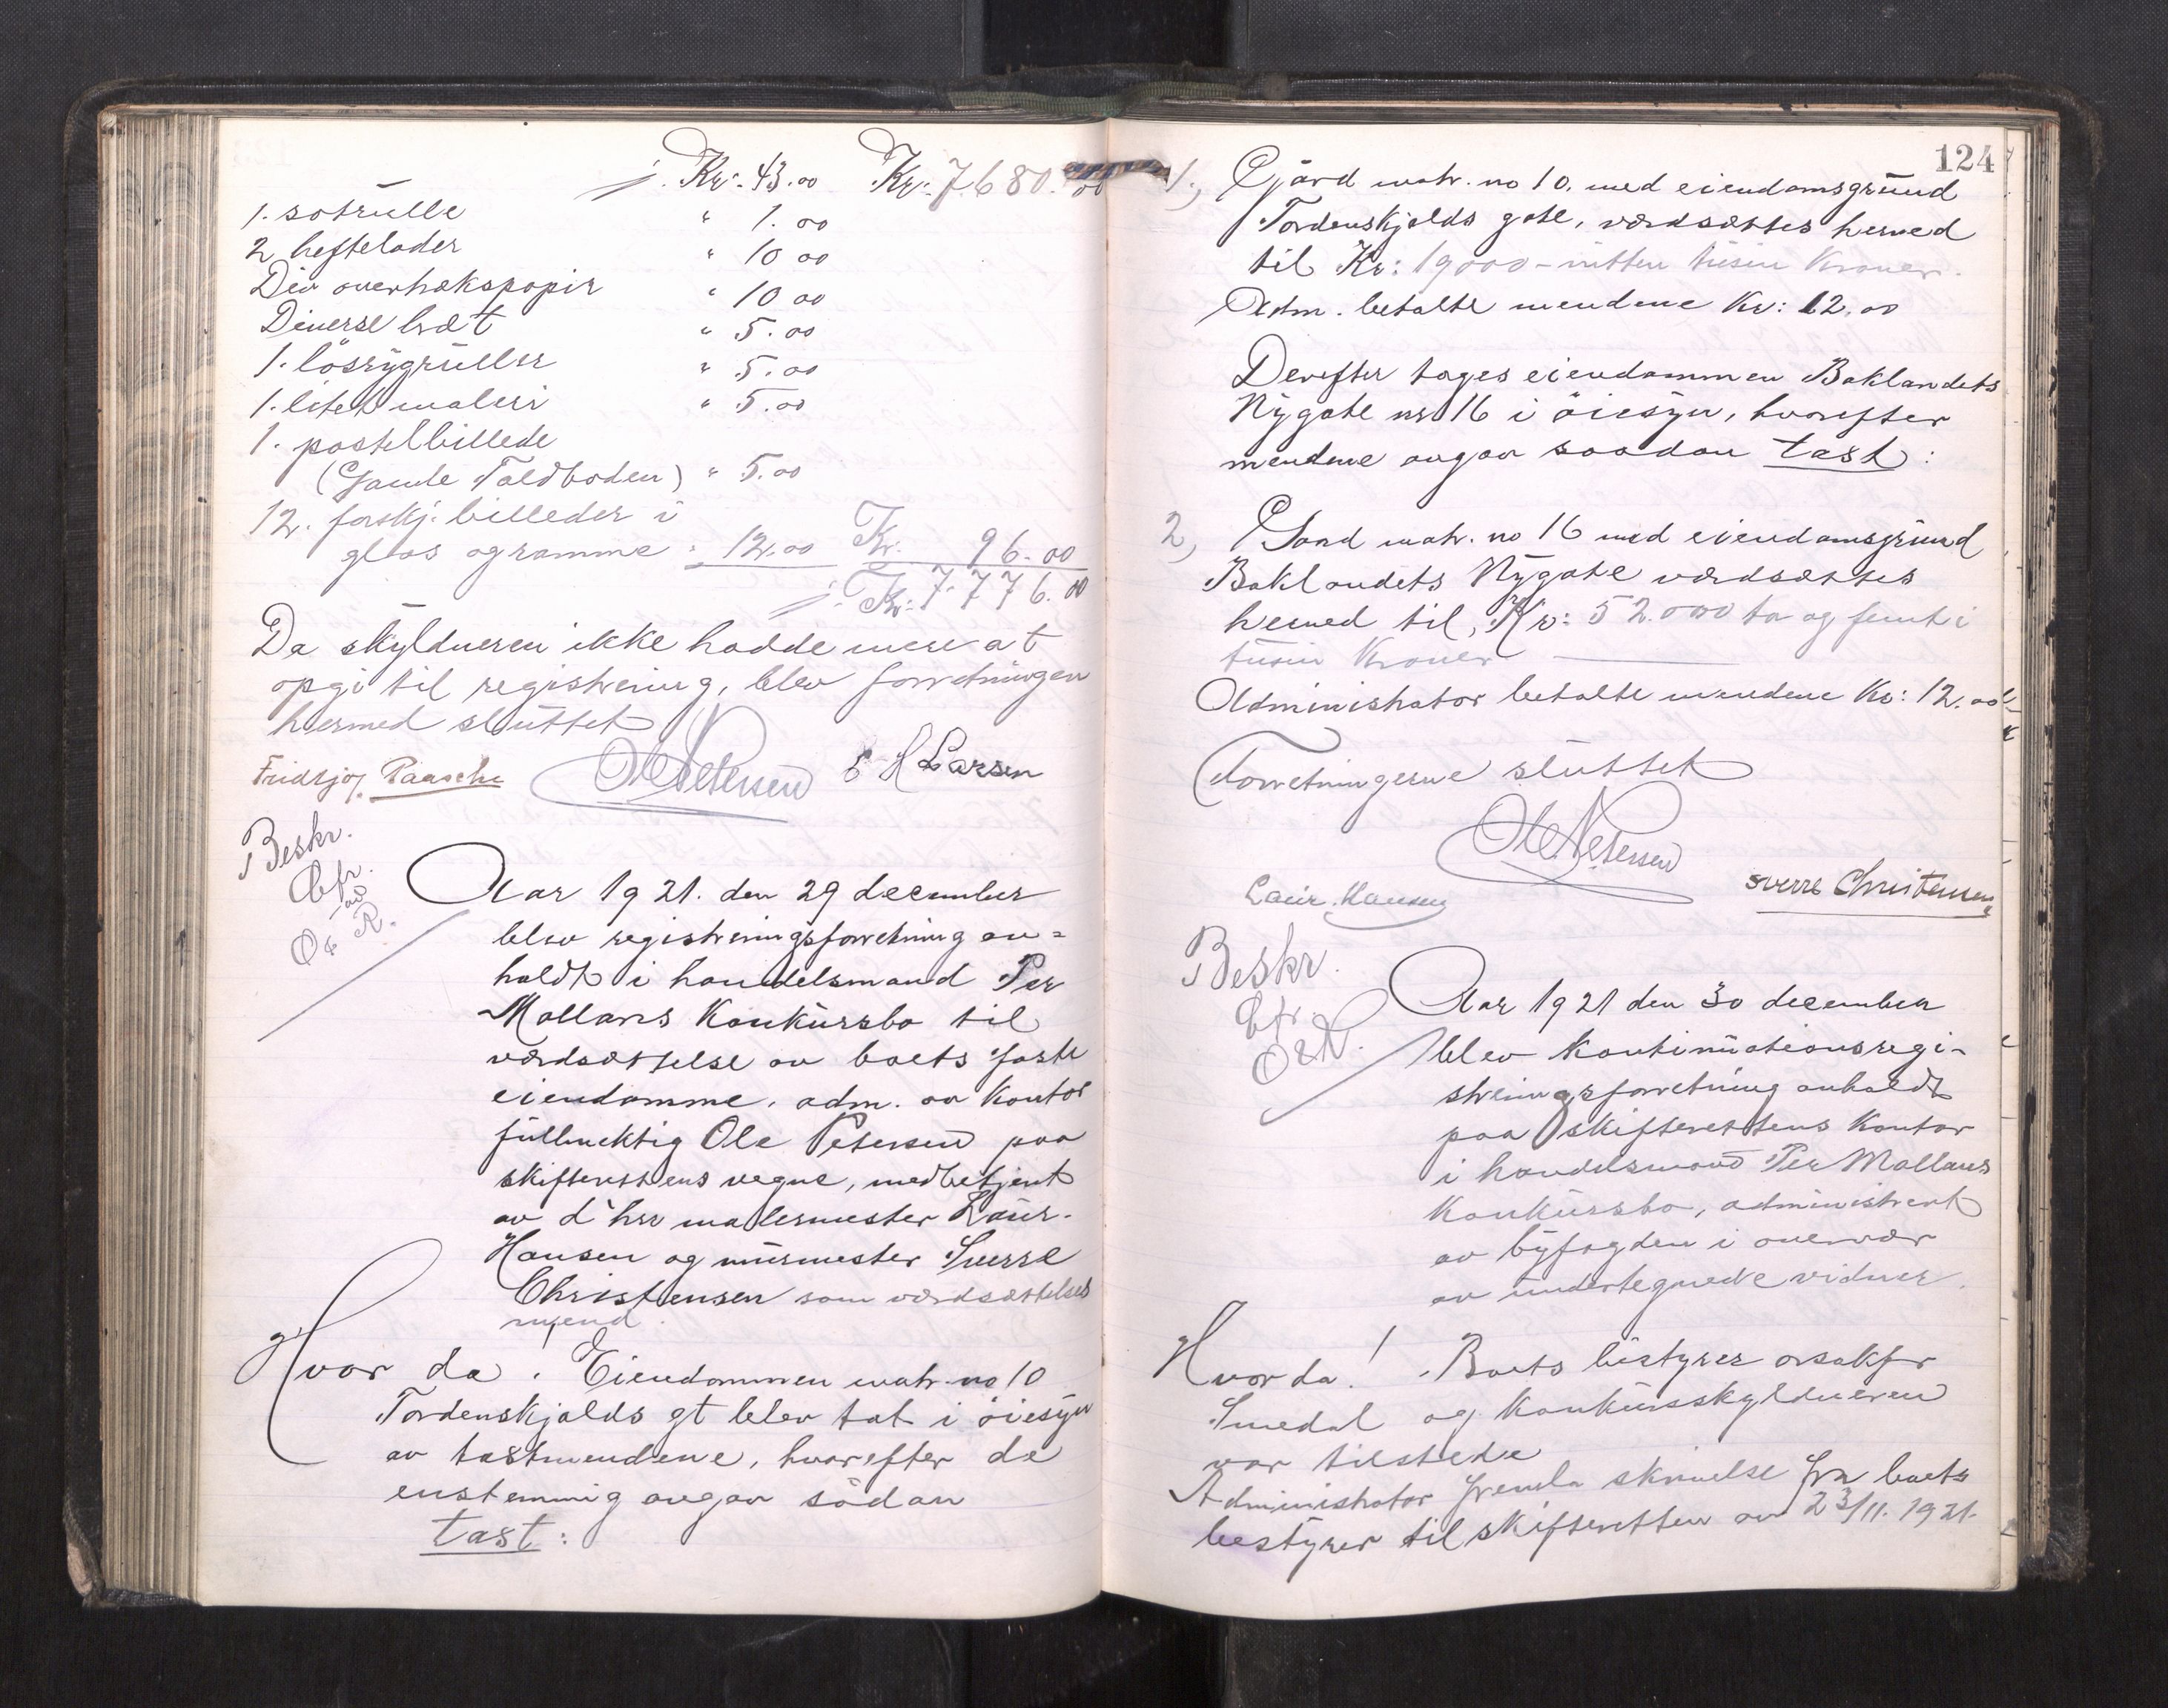 Kr. 43.00 Kr. 7.680.00
1. sotrulle " 1.00
2 heftelader " 10 00
Div overtrækspapir " 10 00
Diverse bræt " 5.00
1. løsrygruller " 5.00
1. litet maleri " 5.00
1. pastelbillede
(Gamle Toldboden) " 5.00
12. forskj. billeder i
glas og ramme " 12.00 Kr. 96.00
Kr: 7.776.00
Da skyldneren ikke hadde mere at
opgi til registrering, blev forretningen
hermed sluttet
Fridtjof Paasche Ole Petersen E H Larsen
Beskr.
Efr.
av
O. R.
Aar 1921. den 29 december
blev registreringsforretning an=
holdt i handelsmand Per
Mollans Konkursbo til
værdsættelse av boets faste
eiendomme, adm. av Kontor
fuldmektig Ole Petersen paa
skifterettens vegne, medbetjent
av d'hrr malermester Laur.
Hansen og murmester Sverre
Christensen som værdsættelses
mænd.
Hvor da! Eiendommen matr. no 10
Tordenskjolds gt blev tat i öiesyn
av takstmendene, hvorefter de
enstemmig avgav sådan
takst:
124
1, Gjård matr. no 10. med eiendomsgrund
Tordenskjolds gate, værdsættes herved
til Kr: 19000 - nitten tusin Kroner.
Adm. betalte mendene Kr: 12.00
Derefter tages eiendommen Baklandets
Nygate nr 16 i öiesyn, hvorefter
mendene avgav saadan takst:
2, Gård matr. no 16 med eiendomsgrund
Baklandets Nygate værdsættes
herved til, Kr: 52.000 to og femti
tusin Kroner
Administrator betalte mendene Kr: 12.00
Forretningerne sluttet
Ole Petersen
Laur. Hansen Sverre Christensen
Beskr.
Efr.
O & R.
Aar 1921 den 30 december
blev Kontinuationsregi-
streringsforretning anholdt
paa skifterettens Kontor
i handelsmand Per Mollans
Konkursbo, administrert
av byfogden i overvær
av undertegnede vidner.
Hvor da! Boets bestyrer orsakfr
Smedal og Konkursskyldneren
var tilstede
Administrator fremla skrivelse fra boets
bestyrer til skifteretten av 23/11. 1921.